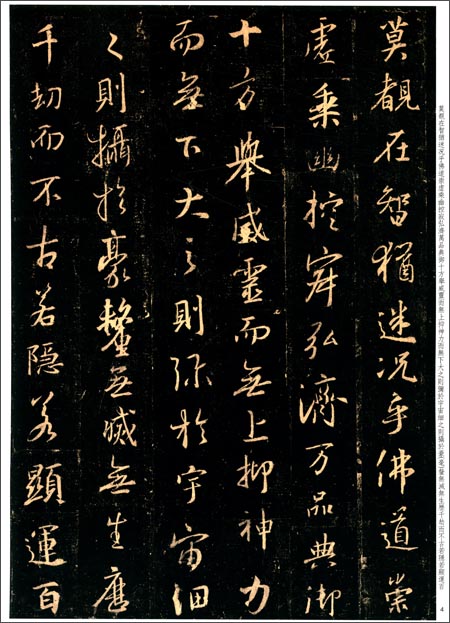 莫覩在智猶迷况乎佛道崇
虛乘幽控寂弘濟万品典御
十方舉威靈而無上抑神力
而無下大之則弥於宇宙細
之則攝於豪釐無滅無生歷
千劫而不古若隱若顯運百
莫覩在智猶迷况乎佛道崇虛乘幽控寂弘濟萬品典御十方舉威靈而無上抑神力而無下大之則彌於宇宙細之則攝於毫釐無滅無生歷千劫而不古若隱若顯運百
4